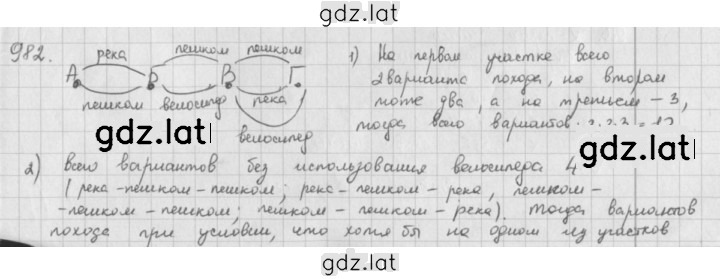 gdz.lat
982.
река пешком пешком
А Б В Г
пешком велосипед река
велосипед
1) На первом участке всего
2 варианта похода, на втором
тоже два, а на третьем – 3,
тогда всего вариантов
gdz.lat
gdz.lat
2) Всего вариантов без использования велосипеда 4
(река – пешком – пешком; река – пешком – река, пешком –
– пешком – пешком; пешком – пешком – река). Тогда вариантов
похода при условии, что хотя бы на одном из участков
gdz.lat